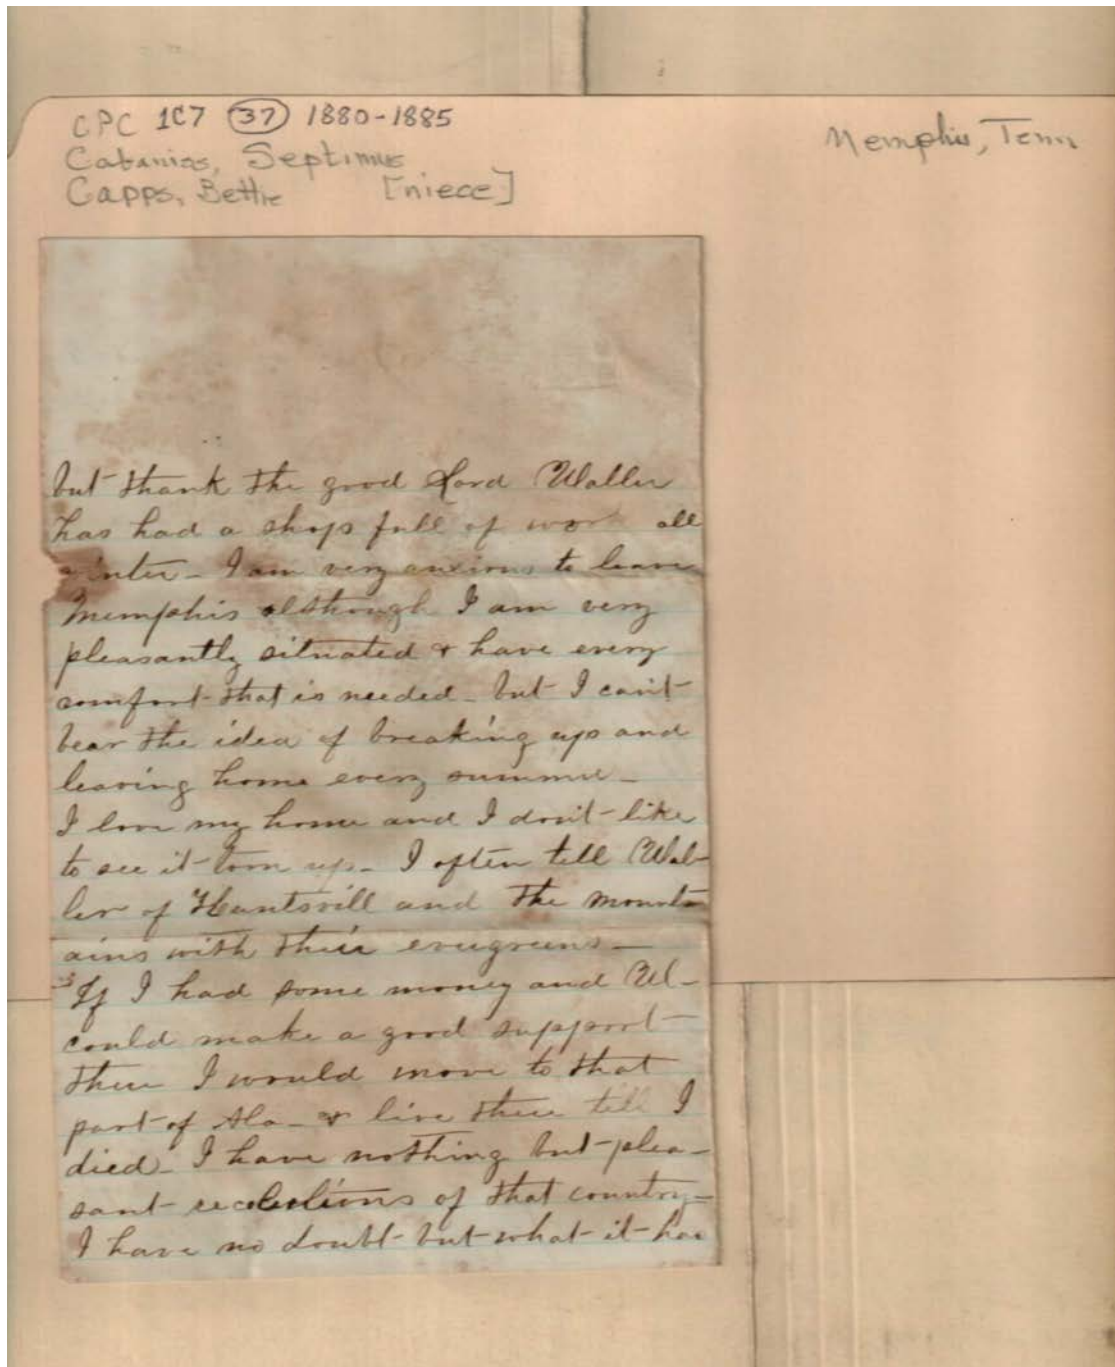 CPC 1C7 (37) 1880-1885
Memphis, Tenn
Cabaniss, Septimus
Capps, Bettie [niece]
but thank the good Lord Waller
has had a shop full of work all
winter - I am very anxious to leave
Memphis although I am very
pleasantly situated & have every
comfort that is needed - but I can't
bear the idea of breaking up and
leaving home every summer -
I love my home and I don't like
to see it torn up - I often tell Wal-
ler of Huntsvill and the mount
ains with their evergreens -
If I had some money and W -
could make a good support -
there I would move to that
part of Ala - & live there till I
died - I have nothing but plea -
sant recolections of that country -
I have no doubt but what it has